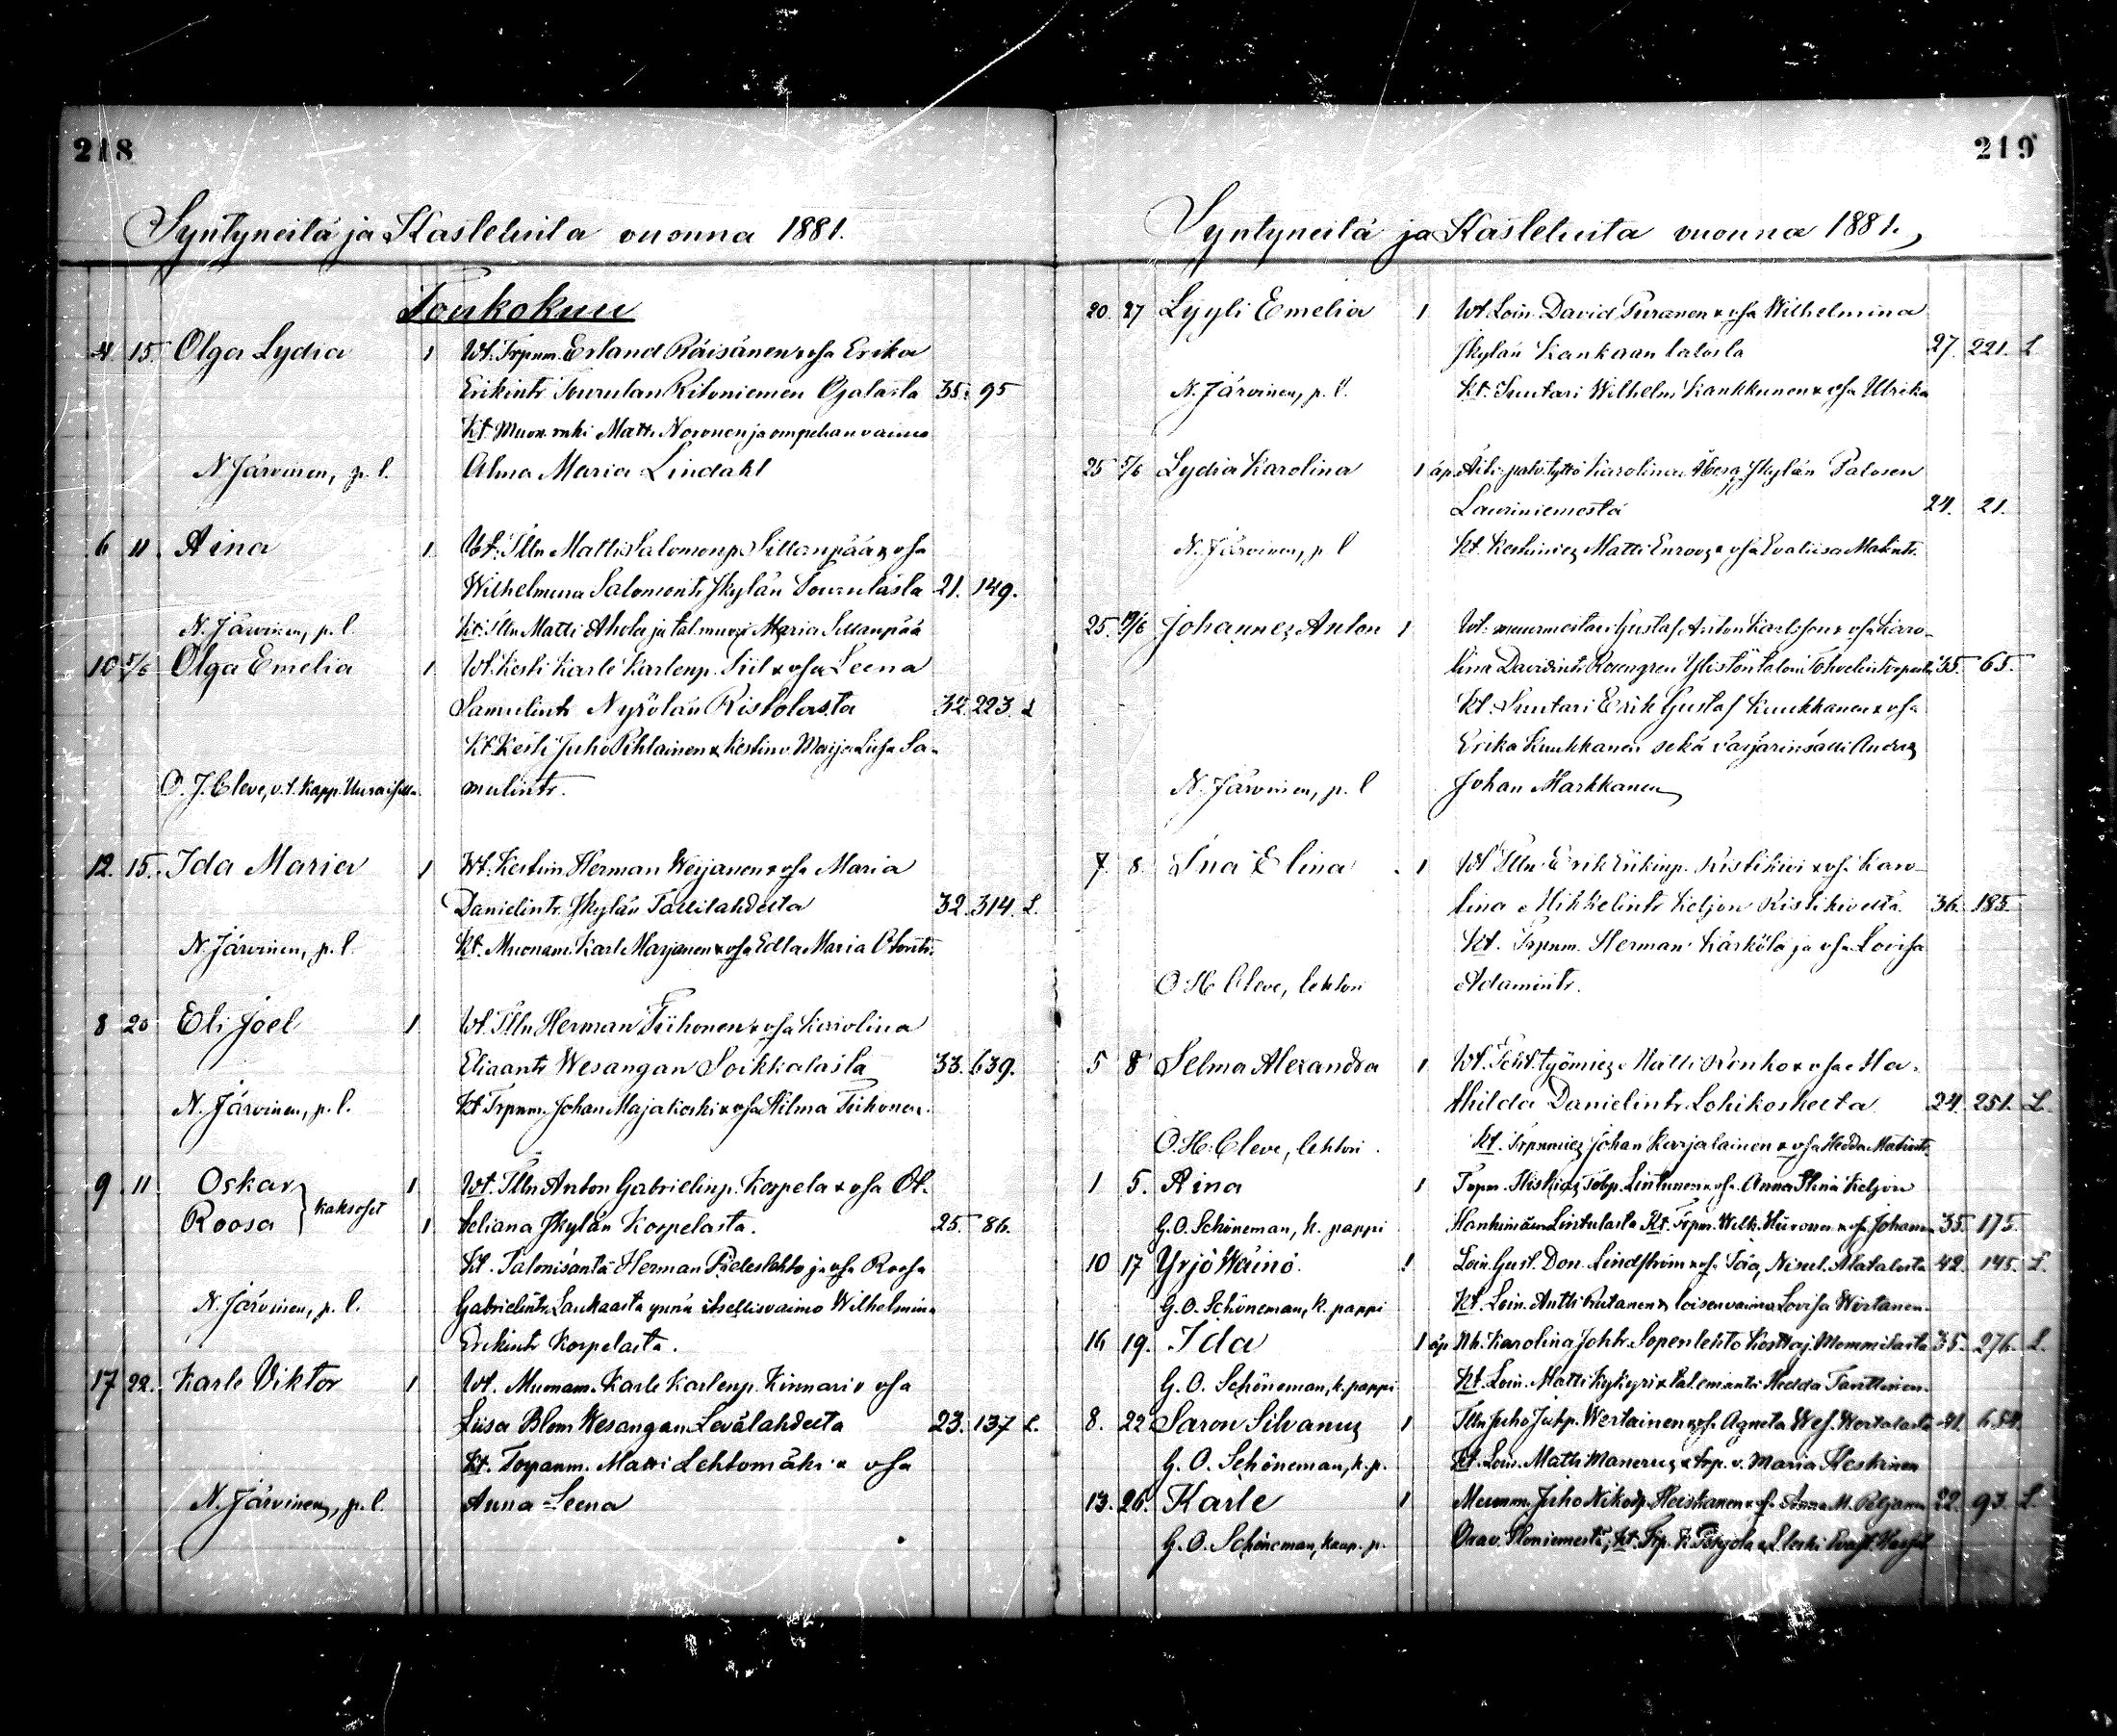 218
Syntyneitä ja Kasteluita vuonna 1881.
Toukokuu
4. 15. Olga Lydia 1 Wt. Trpnm. Erland Räisänen & vsa Erika
Erikintr Tourulan Ritoniemen Ojalasta 35. 95
Kt. Muon. renki Matti Noronen ja ompelian vaimo
N. Järvinen, p. l. Alma Maria Lindahl
6 11 Aina 1 Wt. Tlln Matti Salomonp. Sillanpää & vsa
Wilhelmina Salomontr Jkylän Tourulasta 21. 149.
N. Järvinen, p. l. Kt. Tlln Matti Ahola ja tal. Maria Sillanpää
10 5/6 Olga Emelia 1 Wt. Kesti Karle Karlenp. Siil & vsa Leena
Samulintr Nyrölän Ristolasta 32. 223. L
Kt. Kesti Juho Pihlainen & Kestinv. Maija Liisa Sa-
O. J. Cleve, v. t. Kapp. mulintr.
12. 15. Ida Maria 1 Wt. Kestin Herman Weijanen & vsa Maria
Danielintr. Jkylän Taulilahdesta 32. 314. L.
N. Järvinen, p. l. Kt. Muonam. Karle Marjanen & vsa Edla Maria
8 20 Eli Joel 1 Wt. Tlln Herman Tiihonen & vsa Karolina
Eliaantr Wesangan Soikkalasta 33. 639.
N. Järvinen, p. l. Kt. Trpnm. Johan Majakoski & vsa Hilma Tiihonen.
9 11 Oskar 1 Wt. Tlln Anton Gabrielinp. Korpela & vsa Ot-
Roosa } kaksoset 1 teliana Jkylän Korpelasta. 25. 86.
Kt. Talonisäntä Herman Pieleslehto ja vsa Roosa
N. Järvinen, p. l. Gabrielintr Laukaasta ynnä itsellisvaimo Wilhelmina
Erikintr Korpelasta.
17 22. Karle Viktor 1 Wt. Muonam. Karle Karlenp. Kinnari & vsa
Liisa Blom Wesangan Levälahdesta 23. 137 L.
Kt. Torpanm. Matti Lehtomäki & vsa
N. Järvinen, p. l. Anna-Leena
219
Syntyneitä ja Kasteluita vuonna 1881.
20. 27 Lyyli Emelia 1 Wt. Loin. David Puranen & vsa Wilhelmina
Jkylän Kankaan talosta 27. 221. L
N. Järvinen, p. l. Kt. Suutari Wilhelm Kankkunen & vsa Ulrika
25 5/6 Lydia Karolina 1 äp. Äiti: palv. tyttö Karolina Åberg Jkylän Palosen
Lauriniemestä 24. 21.
N. Järvinen, p. l. Kt. Matti & vsa Evaliisa Matintr.
25. 19/6 Johannes Anton 1 Wt. muurmestari Gustaf Anton Karlsson & vsa Karo-
lina Davidintr Rosengren Ylistön talon 35. 65.
Kt. Suutari Erik Gustaf Kuukkanen & vsa
Erika Kuukkanen sekä värjärinsälli Anders
N. Järvinen, p. l Johan Markkanen
7. 8 Ina Elina 1 Wt Tlln Erik Erikinp. Ristikivi & vsa Karo-
lina Mikkelintr Keljon Ristikivestä. 36. 185.
Kt. Trpnm. Herman Kärkölä ja vsa Lovisa
O H Cleve, lehtori Adamintr.
5 8 Selma Alexandra 1 Wt. työmies Matti Renko & vsa Ma-
thilda Danielintr Lohikoskelta 24. 251. L.
O. H. Cleve, lehtori. Kt. Trpnmies Johan Karjalainen & vsa Hedda Matintr
1 5. Aina 1 Trpm. Lintunen & vsa Anna Stina Keljon
G. O. Schöneman, k. pappi Lintulasta Kt. Trpm. Wilh. Hiironen & vsa Johanna 35. 175.
10 17 Yrjö Wäinö. 1 Loin. Gust. Don. Lindström & vsa Nisul. Alatalosta 42. 145. L.
G. O. Schöneman, k. pappi Kt. Loin. Antti Rutanen & loisenvaimo Lovisa Wirtanen.
16 19. Ida 1 äp Nk. Karolina Johtr. Sopenlehto 35. 276. L.
G. O. Schöneman, k. pappi Kt. Loin. Matti Kykyri & tal. emäntä Hedda Tanttinen.
8. 22 Saron Silvanus 1 Tlln Juho Juhp. Wertainen & vsa Agneta Wes. Wertalasta 41. 654.
G. O. Schöneman, k. p. Kt. Loin. Matti Manerus & trp. v. Maria Heskinen
13. 26. Karle 1 Muonm. Juho Nikodp. Heiskanen & vsa Anna M. 22. 93. L.
G. O. Schöneman, kapp. p.